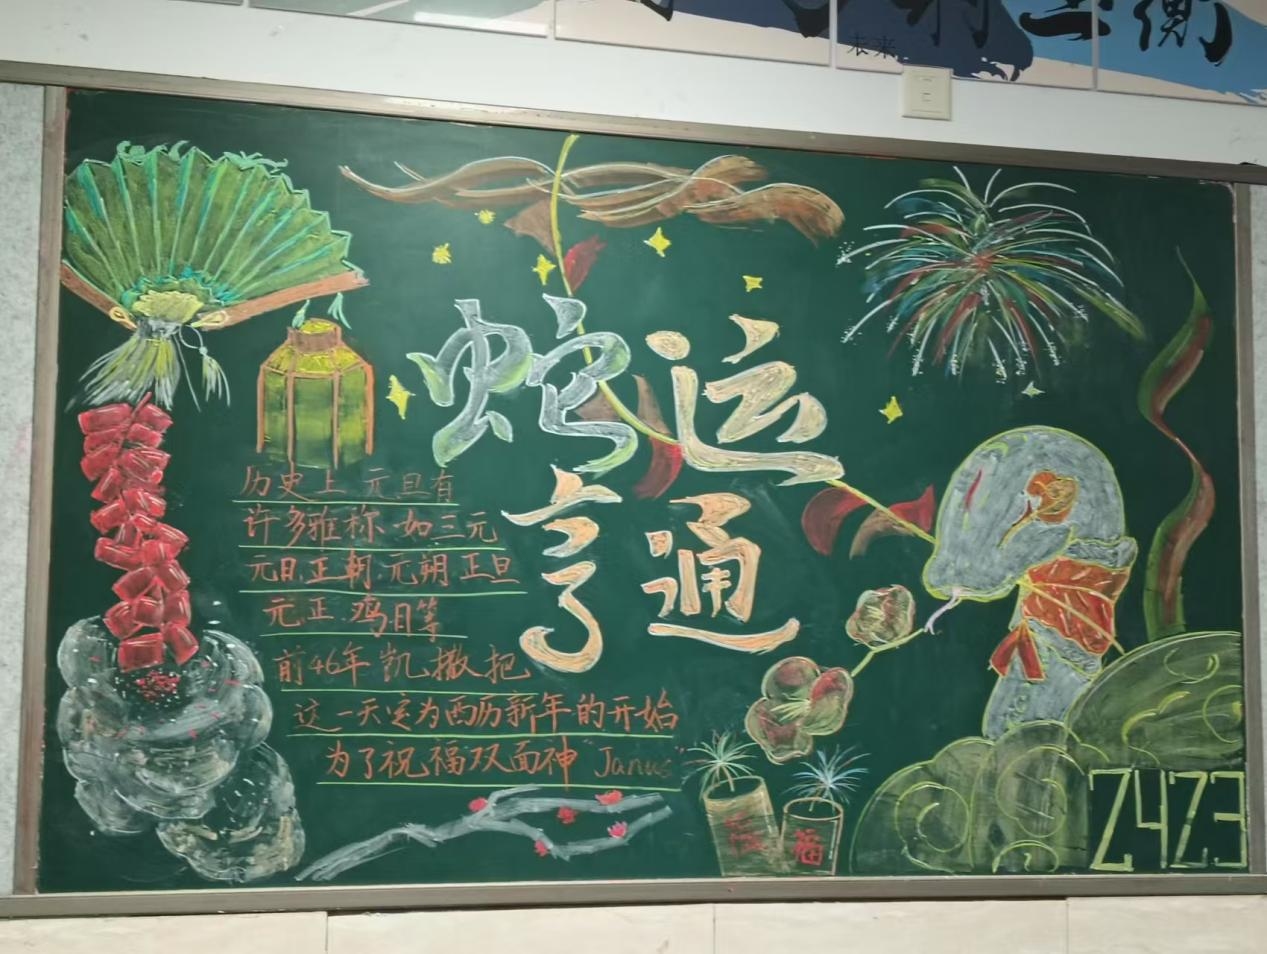 未来
蛇运
亨通
历史上元旦有
许多雅称如三元
元日.正朝.元朔.正旦
元正.鸡日等
前46年凯撒把
这一天定为西历新年的开始
为了祝福双面神"Janus"
福
2423